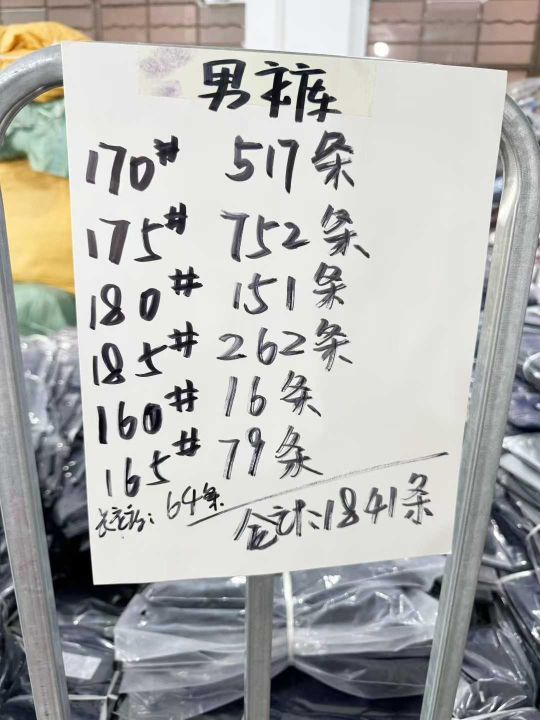 男裤
170# 517条
175# 752条
180# 151条
185# 262条
160# 16条
165# 79条
64条
合计:1841条